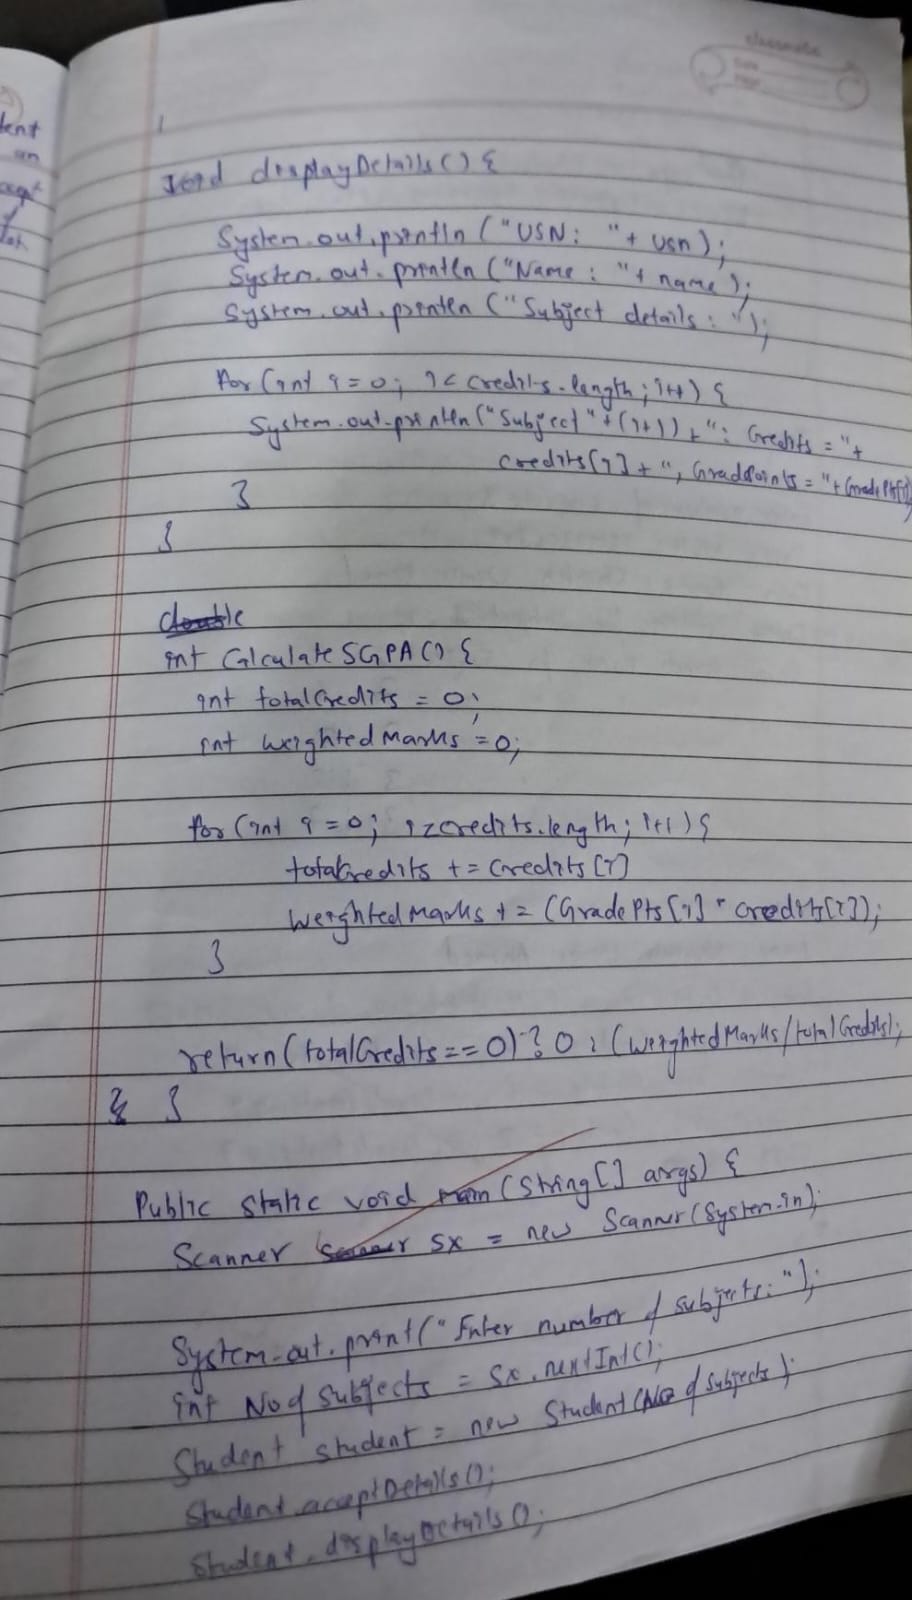 classmate
Date
Page
dent
an
void displayDetails() {
System.out.println ("USN: "+ usn);
System.out.println ("Name: "+ name);
System.out.println ("Subject details: ");
for (int i=0; i< credits.length; i++) {
System.out.println ("Subject"+(i+1)+": Credits = "+
credits[i] + ", GradePoints = "+ GradePts[i]
}
}
double
int CalculateSGPA() {
int totalCredits = 0;
int weightedMarks = 0;
for (int i=0; i<credits.length; i++) {
totalCredits += credits[i]
weightedMarks += (GradePts[i] * credits[i]);
}
return (totalCredits == 0) ? 0 : (weightedMarks/totalCredits);
} }
Public static void main (String[] args) {
Scanner Scanner sx = new Scanner (System.in);
System.out.print("Enter number of subjects: ");
int Nofsubjects = sx.nextInt();
Student student = new Student (Nofsubjects);
Student.acceptDetails();
Student.displayDetails();